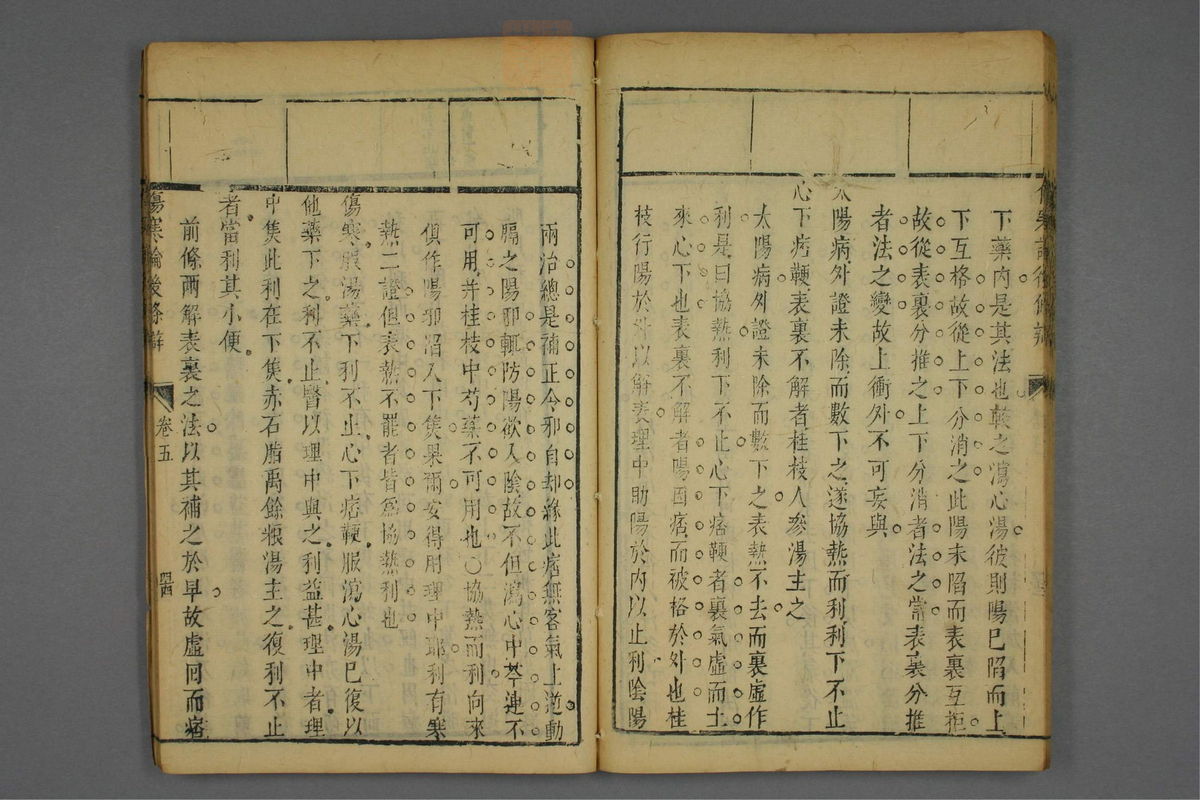 傷寒論後條辨
下藥內是其法也較之瀉心湯彼則陽已陷而上
下互格故從上下分消之此陽未陷而表裏互拒
故從表裏分推之上下分消者法之常表裏分推
者法之變故上衝外不可妄與
太陽病外證未除而數下之遂協熱而利利下不止
心下痞鞕表裏不解者桂枝人參湯主之
太陽病外證未除而數下之表熱不去而裏虛作
利是曰協熱利下不止心下痞鞕者裏氣虛而土
來心下也表裏不解者陽因痞而被格於外也桂
枝行陽於外以解表理中助陽於內以止利陰陽
兩治總是補正令邪自却緣此痞無客氣上逆動
膈之陽邪輒防陽欲入陰故不但瀉心中芩連不
可用并桂枝中芍藥不可用也〇協熱而利向來
俱作陽邪陷入下焦果爾安得用理中耶利有寒
熱二證但表熱不罷者皆爲協熱利也
傷寒服湯藥下利不止心下痞鞕服瀉心湯已復以
他藥下之利不止醫以理中與之利益甚理中者理
中焦此利在下焦赤石脂禹餘粮湯主之復利不止
者當利其小便
前條兩解表裏之法以其補之於早故虛回而痞
傷寒論後條辨
卷五
四